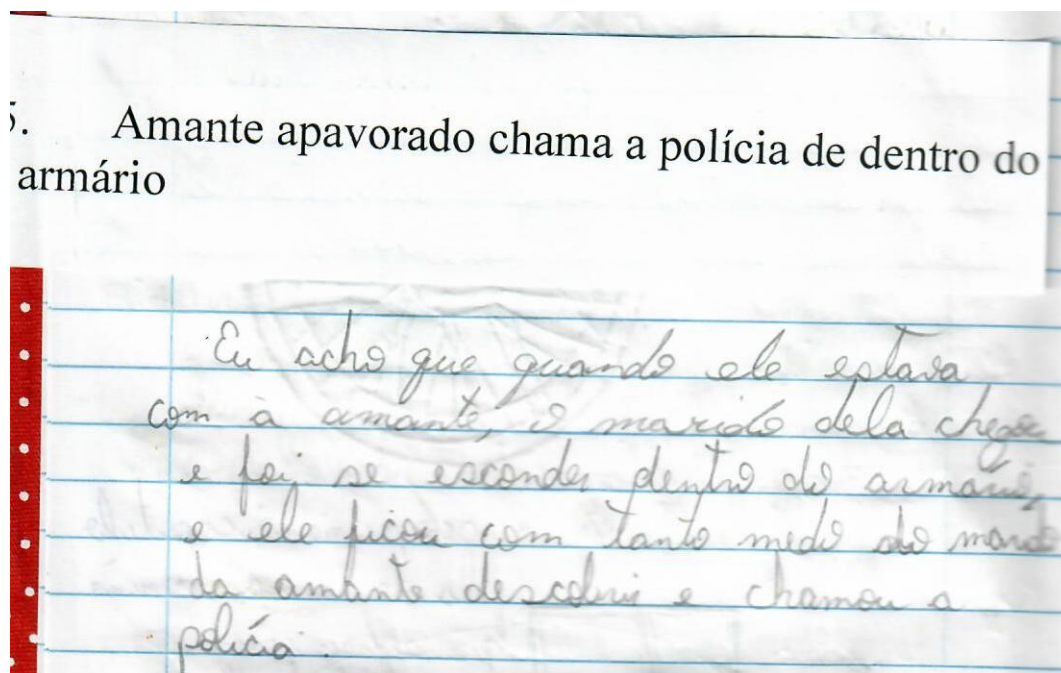 5. Amante apavorado chama a polícia de dentro do
armário
Eu acho que quando ele estava
com à amante, o marido dela chegou
e foi se esconder dentro do armário,
e ele ficou com tanto medo do
da amante descobrir e chamou a
polícia.